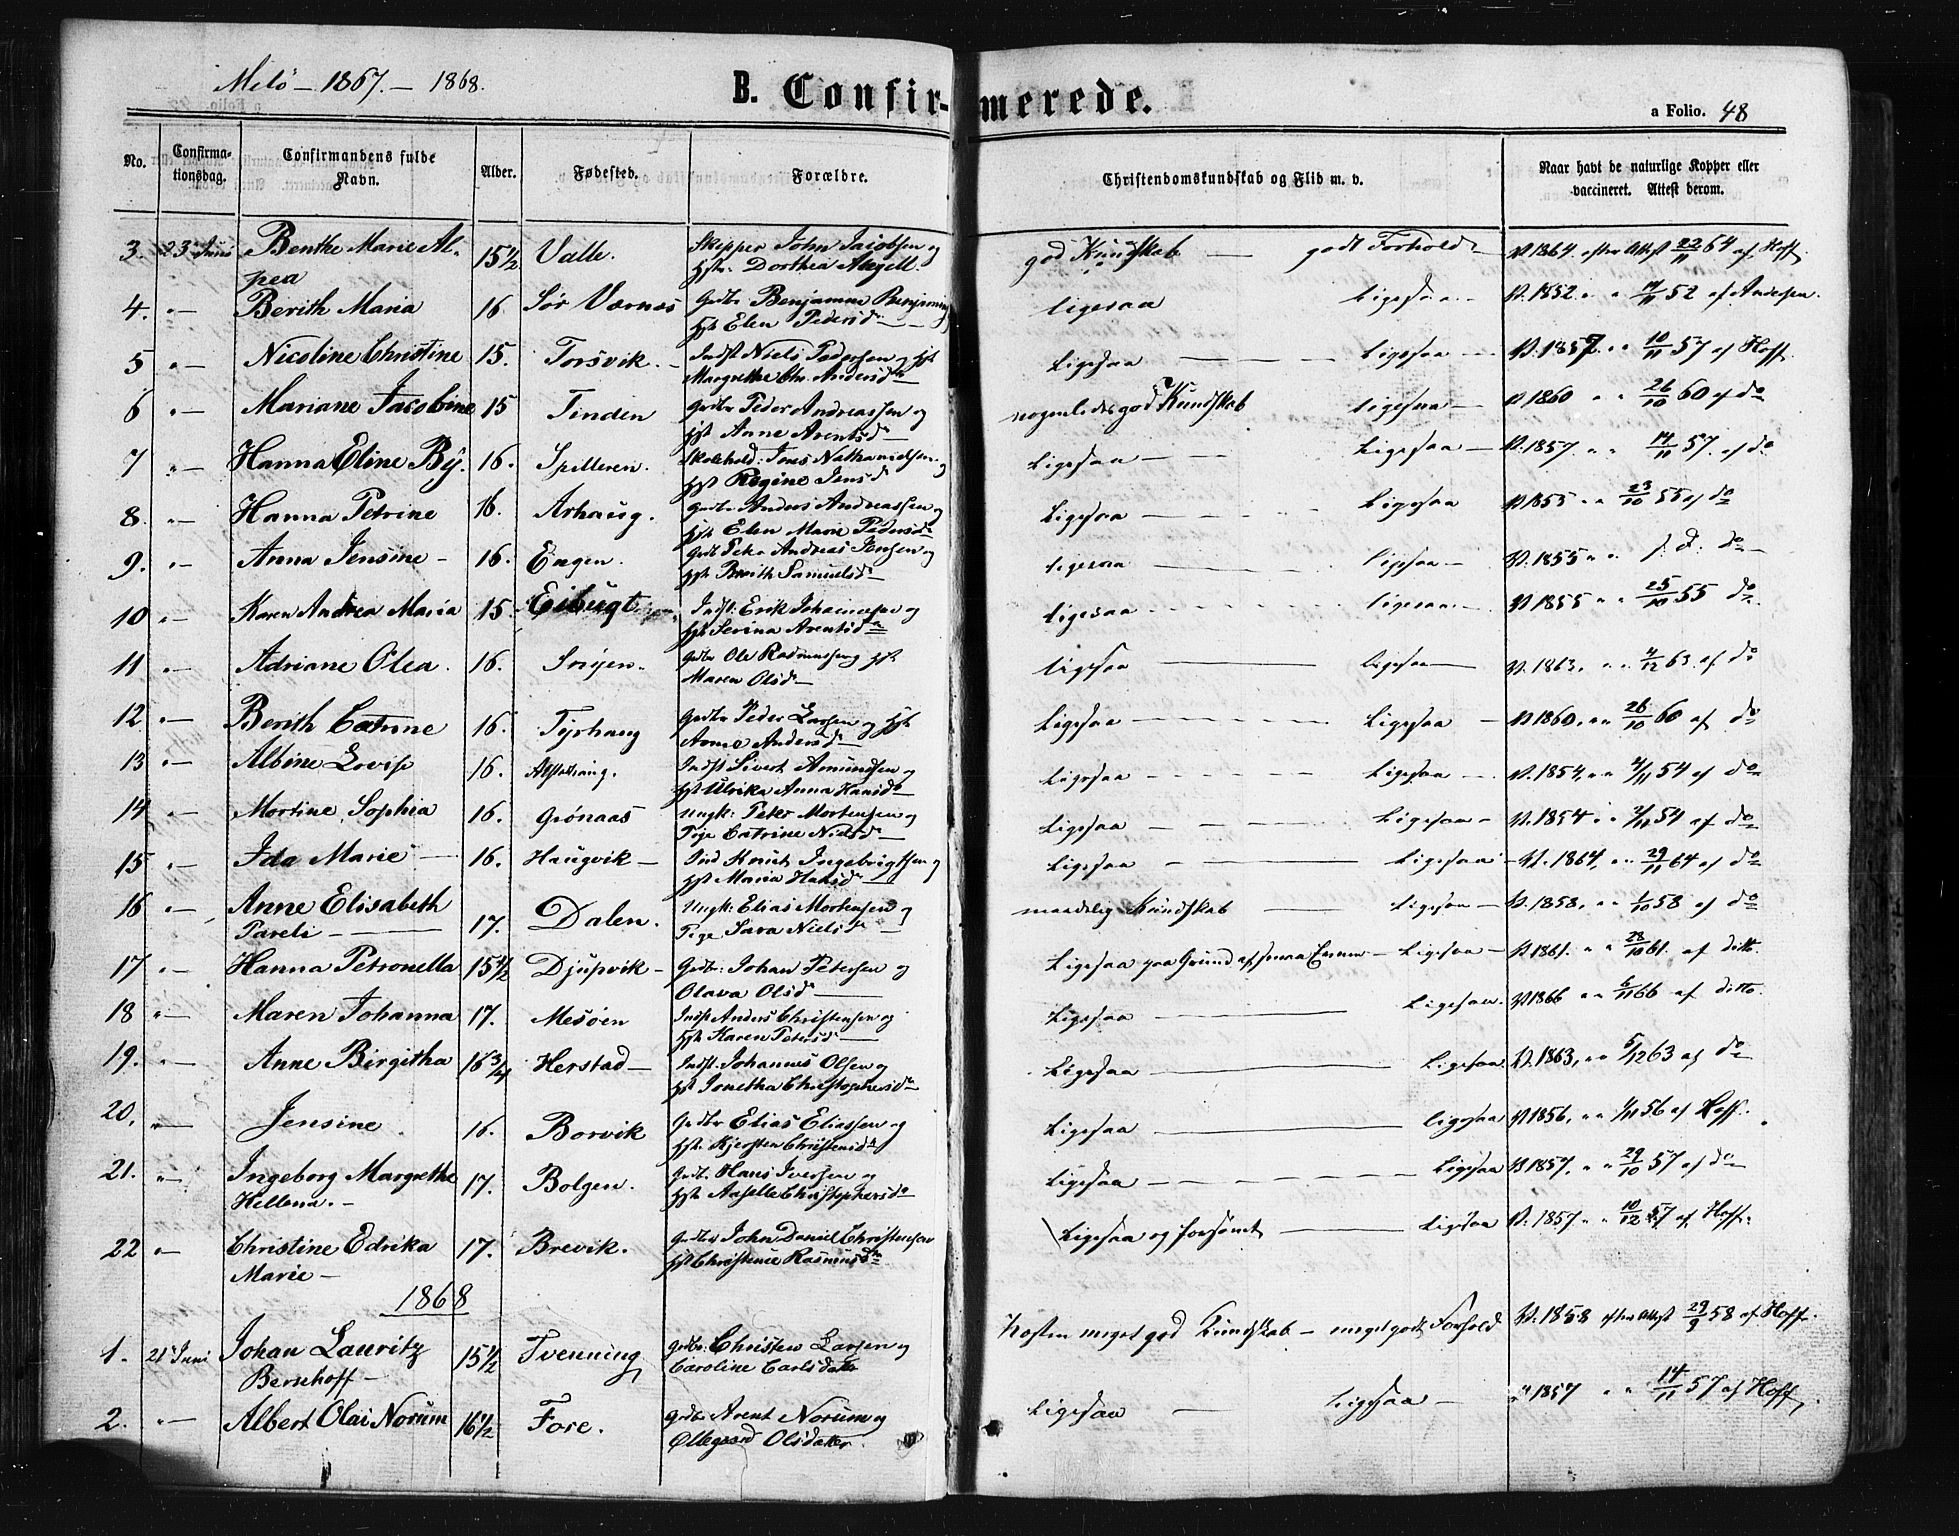 Melö – 1867. – 1868.
B. Confirmerede.
a Folio. 48
No. Confirmationsdag. Confirmandens fulde Navn. Alder. Fødested. Forældre. Christendomskundskab og Flid m. v. Naar havt de naturlige Kopper eller vaccineret. Attest derom.
3. 23 Juni Benthe Marie Al- 15½ Valle. Skipper John Jacobsen og god Kundskab — godt Forhold V. 1864 efter Attest 22/11 64 af Hoff
pea Hstr. Dorthea Angell.
4. " Berith Maria 16 Sör Værnes Grdbr Benjamin ligesaa Ligesaa V. 1852 " " 52 af Andersen.
Hst Elen Pedersd
5 " Nicoline Christine 15. Torsvik. Indst Niels Pedersen og Hst Ligesaa Ligesaa V. 1857 " " 10/11 57 af Hoff.
Margrethe Chr. Andersd
6 " Mariane Jacobine 15 Tinden Grdbr Peder Andreassen og nogenledes god Kundskab ligesaa V 1860 " " 26/10 60 af do
Hst Anne Arentsd
7 " Hanna Eline By. 16. Spilleren. Skolehold: Jens Nathanielsen og Ligesaa Ligesaa V. 1857 " " 14/10 57. af do
Hst Regine Jensd
8. " Hanna Petrine 16. Arhaug. Grdbr. Anders Andreassen og Ligesaa Ligesaa V 1855 " " 23/10 55 af do
Hst Elen Marie Pedersd
9. " Anna Jensine – 16. Engen. Grdb Peter Andreas Jensen og ligesaa Ligesaa V. 1855 " " do
Hst Berith Samuelsd
10 " Karen Andrea Maria 15. Eibugt Indst: Erik Johannesen og ligesaa ligesaa V 1855 " " 25/10 55 do
Hst Serina Arentsd
11 " Adriane Olea. 16. Grdbr Ole Rasmussen og Hst ligesaa ligesaa V. 1863. " " 4/12 63. af do
Maren Olsd
12. " Berith Catrine 16. Tyrhaug Grdbr Peder Larsen og Hst Ligesaa Ligesaa V 1860, " " 26/10 60 af do
Anne Andersd
13 " Albine Lovise 16. Indst Sivert Amundsen og Ligesaa Ligesaa V. 1854, " " 4/11 54 af do
Hst Ulrika Anna Hansd
14 " Martine Sophia 16. Grönaas Ungk: Peter Mortensen og Ligesaa Ligesaa V. 1854 " " 2/11 54 af do
Pige Catrine Nielsd
15 " Ida Marie 16. Haugvik Ind Knut Ingebrigtsen og Ligesaa Ligesaa V. 1864, " " 29/11 64 af do
Hst Maria Hansd
16 " Anne Elisabeth 17. Dalen. Ungk: Elias Mortensen og maadelig Kundskab Ligesaa V. 1858, " " 1/10 58 af do
Pareli Pige Sara Nielsd
17 " Hanna Petronella 15½ Djupvik Grdbr: Johan Petersen og Ligesaa paa Grund af smaa Evner Ligesaa V 1861. " " 28/10 61. af ditto.
Olava Olsd
18 " Maren Johanna 17. Mesöen Inds Anders Christensen og Ligesaa Ligesaa. V 1866 " " 6/11 66 af ditto.
Hst Karen Petersd
19. " Anne Birgitha 16¾ Herstad Indst. Johannes Olsen og Ligesaa Ligesaa V. 1863, " " 5/12 63 af do
Hst Jonetha Christophersd
20. " Jensine 16. Borvik Grdbr Elias Eliassen og Ligesaa ligesaa V 1856, " " 1/11 56 af Hoff.
Hst. Kjersten Christensd
21. " Ingeborg Margrethe 17. Bolgen. Grdb. Hans Iversen og Ligesaa Ligesaa V 1857, " " 29/10 57 af do
Hellena. – Hst Aaselle Christophersd
22 " Christine Edrika 17. Brevik. Grdbr John Daniel Christensen Ligesaa og forsömt Ligesaa V. 1857 " " 10/12 57 af Hoff.
Marie – Hst Christense Rasmusd
1868
1. 21 Juni Johan Lauritz 15½ Tvenning Grdbr: Christen Larsen og Næsten meget god Kundskab – meget godt Forhold V. 1858 efter Attest 29/9 58 af Hoff
Bernhoff – Caroline Carlsdatter
2. " Albert Olai Norum 16½ Fore. Grdbr Arent Norum og Ligesaa Ligesaa " 1857 " " 14/11 57 af Hoff
Ollegaard Olsdatter.